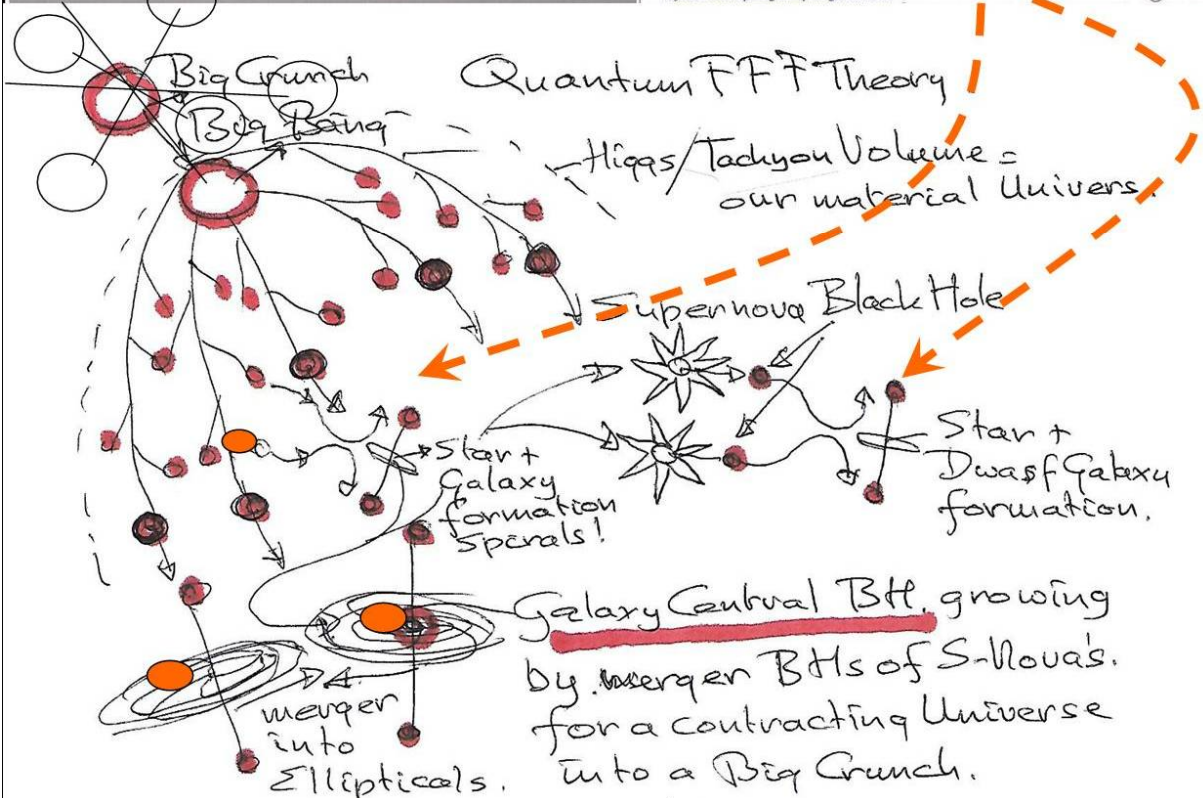 Big Crunch
Big Bang
Quantum FFF Theory
Higgs/Tachyon Volume =
our material Univers.
Supernova Black Hole
Star +
Galaxy
formation
Spirals!
Star +
Dwarf Galaxy
formation.
Galaxy Central BH. growing
by merger BHs of S-Nova's.
for a contracting Universe
into a Big Crunch.
merger
into
Ellipticals.